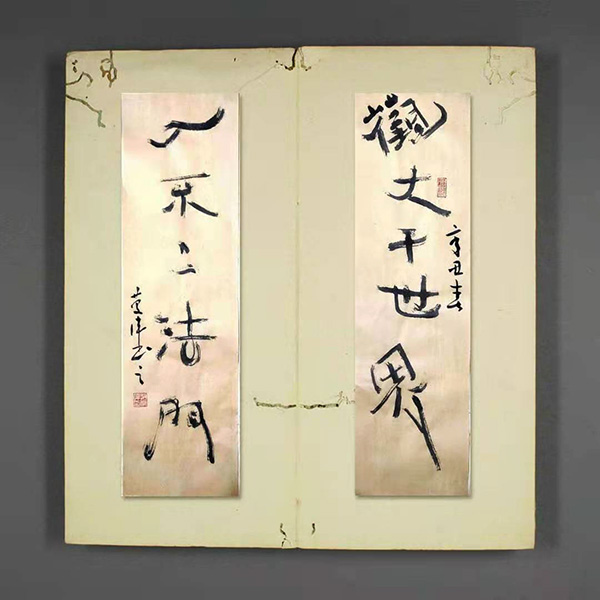 觀大千世界
辛丑春
入不二法門
书之